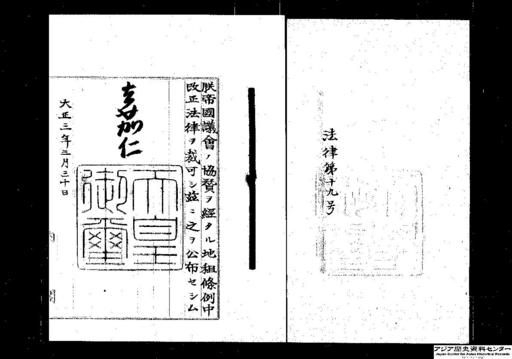 法律第十九号
朕帝國議會ノ協賛ヲ經タル地租條例中
改正法律ヲ裁可シ茲ニ之ヲ公布セシム
嘉仁
天皇
御璽
大正三年三月三十日
内
閣
アジア歴史資料センター
Japan Center for Asian Historical Records